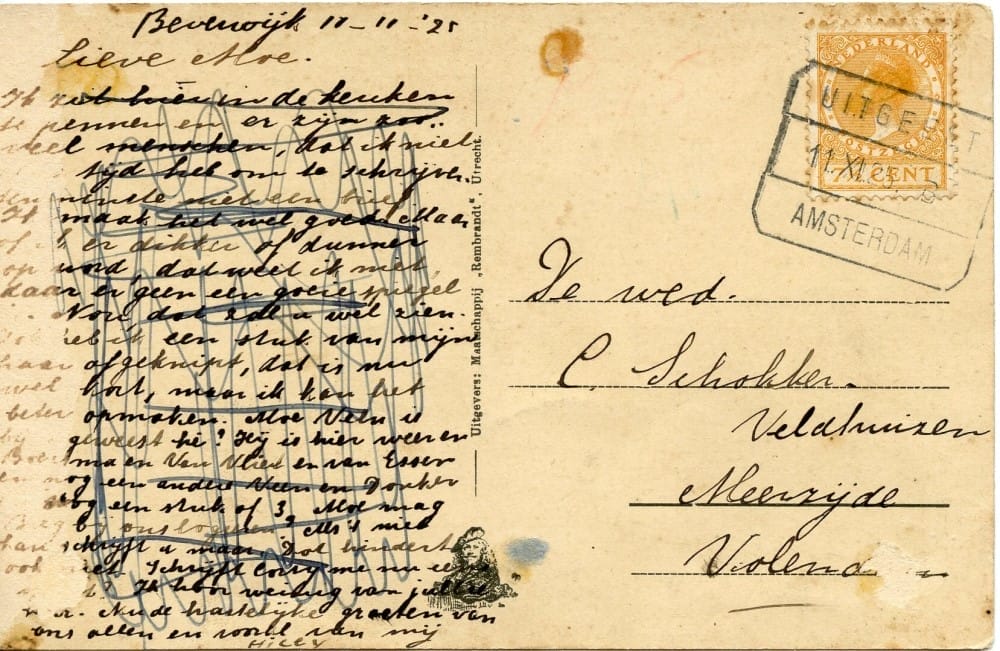 Beverwijk 11-11-'25
Lieve Moe.
Ik zit hier in de keuken
te pennen en er zijn zoo
veel menschen, dat ik niet
tijd heb om te schrijven
minste met een brief
Ik maak het wel goed. Maar
of ik er dikker of dunner
op word, dat weet ik niet,
daar er geen een goeie spiegel
Nou dat zal u wel zien.
heb ik een stuk van mijn
haar afgeknipt, dat is nu
wel kort, maar ik kan het
beter opmaken. Moe Veln is
geweest hè? Hij is hier weer en
Boersma en Van Vliet en van Essen
en nog een andere Veen en Donker
nog een stuk of 3. Moe mag
bij ons logeeren? Als 't niet
kan schrijft u maar. Dat hindert
ook niet. Schrijft Corry me nu eens
Ik hoor weinig van jullie
Nu de hartelijke groeten van
ons allen en vooral van mij
HILLY
Uitgevers: Maatschappij „Rembrandt", Utrecht.
NEDERLAND
POSTZEGEL
7½ CENT
UITGEEST
11.XI.25. B
AMSTERDAM
De wed.
C. Schokker.
Veldhuizen
Meerzijde
Volend